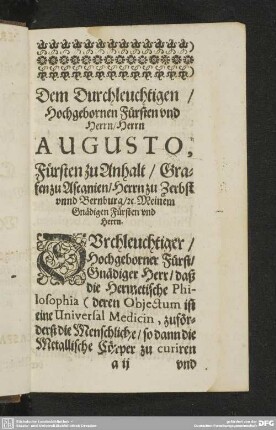 Dem Durchleuchtigen /
Hochgebornen Fürsten und
Herrn / Herrn
AUGUSTO,
Fürsten zu Anhalt / Gra-
fen zu Ascanien / Herrn zu Zerbst
vnnd Bernburg / ꝛc. Meinem
Gnädigen Fürsten vnd
Herrn.
DVrchleuchtiger /
Hochgeborner Fürst /
Gnädiger Herr / daß
die Hermetische Phi-
losophia (deren Objectum ist
eine Universal Medicin, zuför-
derst die Menschliche / so dann die
Metallische Cörper zu curiren
a ij vnd